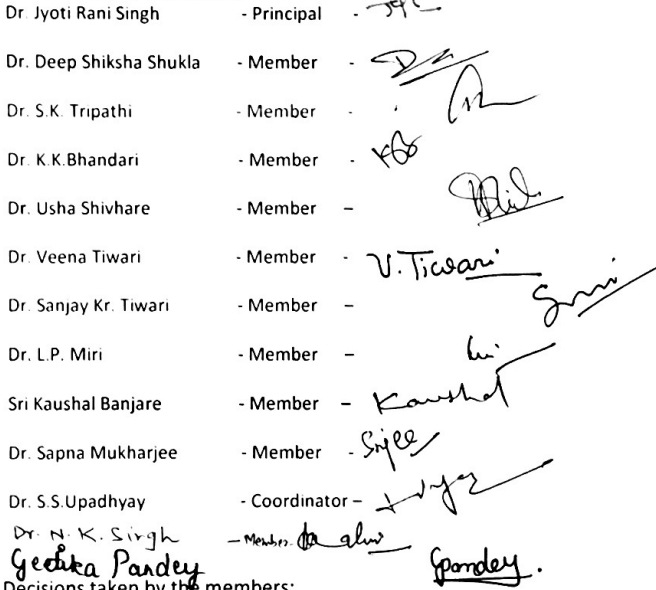 Dr. Jyoti Rani Singh - Principal -
Dr. Deep Shiksha Shukla - Member -
Dr. S.K. Tripathi - Member -
Dr. K.K.Bhandari - Member -
Dr. Usha Shivhare - Member –
Dr. Veena Tiwari - Member - V. Tiwari
Dr. Sanjay Kr. Tiwari - Member –
Dr. L.P. Miri - Member –
Sri Kaushal Banjare - Member – Kaushal
Dr. Sapna Mukharjee - Member -
Dr. S.S.Upadhyay - Coordinator –
Dr. N. K. Singh – Member
Geetika Pandey Gpandey.
Decisions taken by the members: